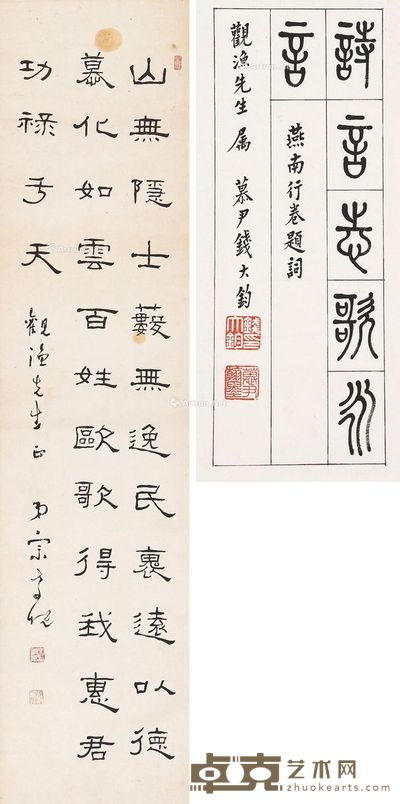 詩言志歌永
言
燕南行卷題詞
觀漁先生屬 慕尹錢大鈞
山無隱士藪無逸民褱遠以德
慕化如雲百姓歐歌得我惠君
功祿于天 觀漁先生正 弟宗孝忱
卓克艺术网
www.zhuokearts.com